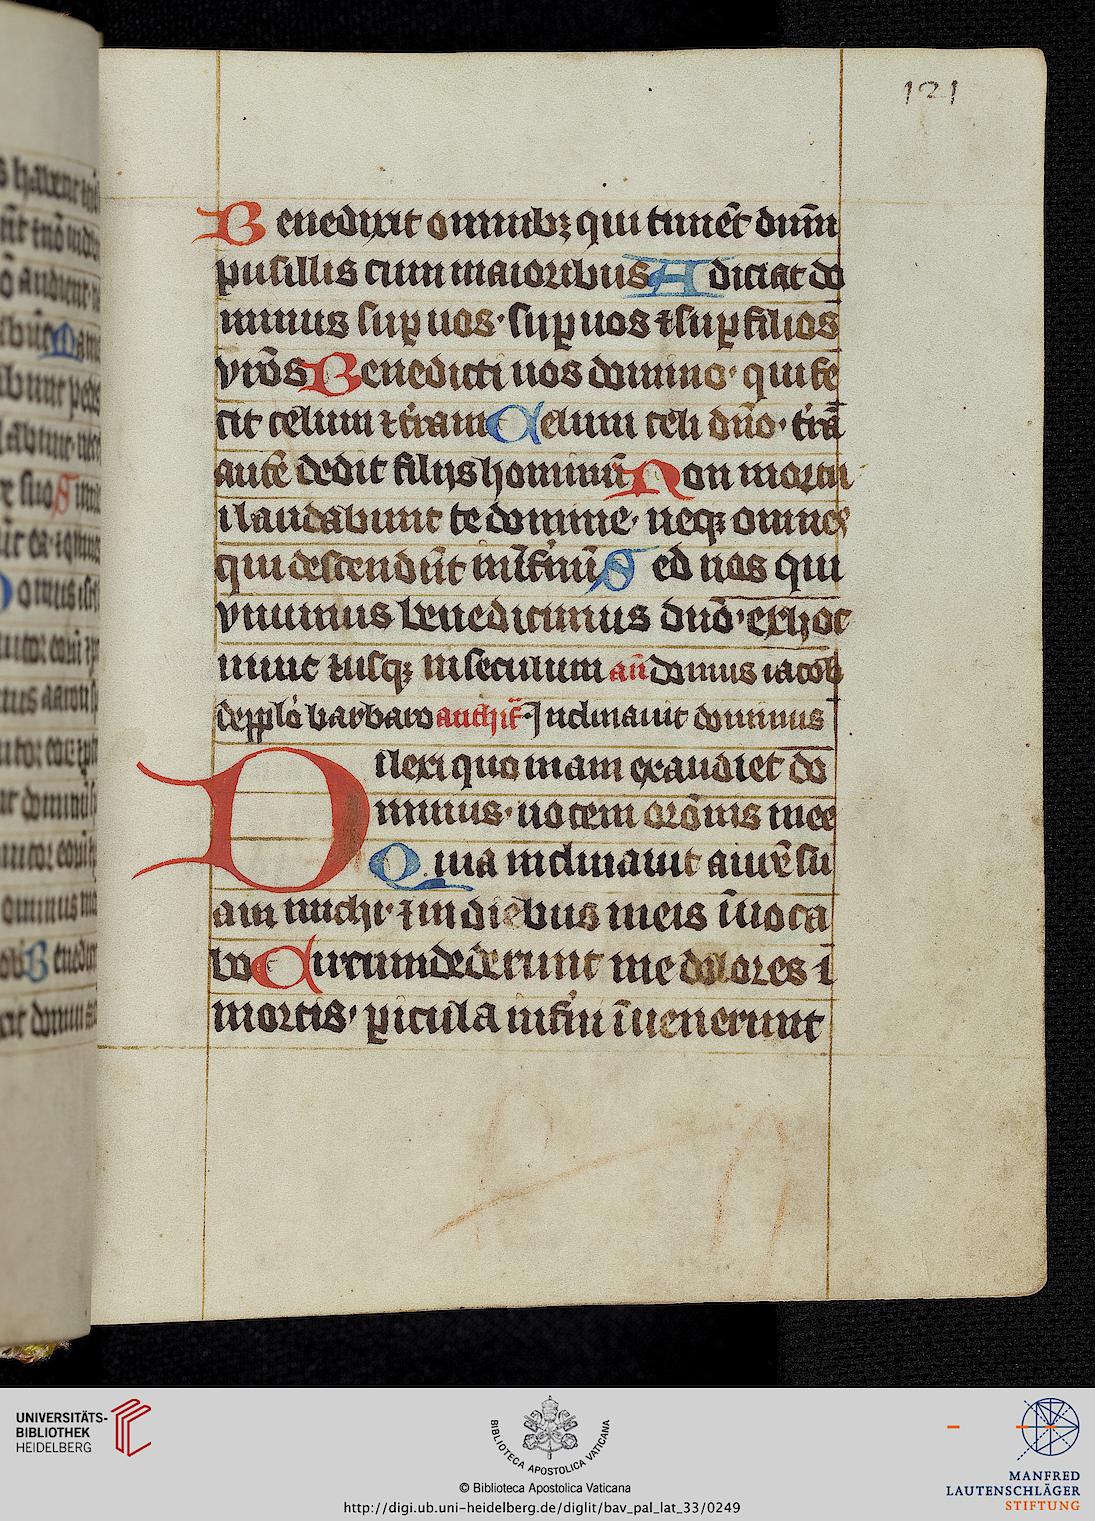 121
Benedixit omnibꝫ qui timēt dnm̄
pusillis cum maioribus Adiciat do
minus suꝑ uos · suꝑ uos ⁊ suꝑ filios
vr̄os Benedicti uos domino · qui fe
cit celum ⁊ t'ram Celum celi dn̄o · t'rā
autē dedit filijs hominū Non mortu
i laudabunt te domine · neqꝫ omnes
qui descendūt in īfernū Sed nos qui
viuimus benedicimus dn̄o · ex hoc
nunc ⁊ usqꝫ in seculum an̄ domus iacob
de pplo barbaro Inclinauit dominus
Dilexi quoniam exaudiet do
minus · uocem or̄onis mee
Quia inclinauit aurē su
am michi · ⁊ in diebus meis īuoca
bo Circumdederunt me dolores
mortis · ꝑicula inf'ni īuenerunt
UNIVERSITÄTS-
BIBLIOTHEK
HEIDELBERG
BIBLIOTECA APOSTOLICA VATICANA
© Biblioteca Apostolica Vaticana
http://digi.ub.uni-heidelberg.de/diglit/bav_pal_lat_33/0249
MANFRED
LAUTENSCHLÄGER
STIFTUNG